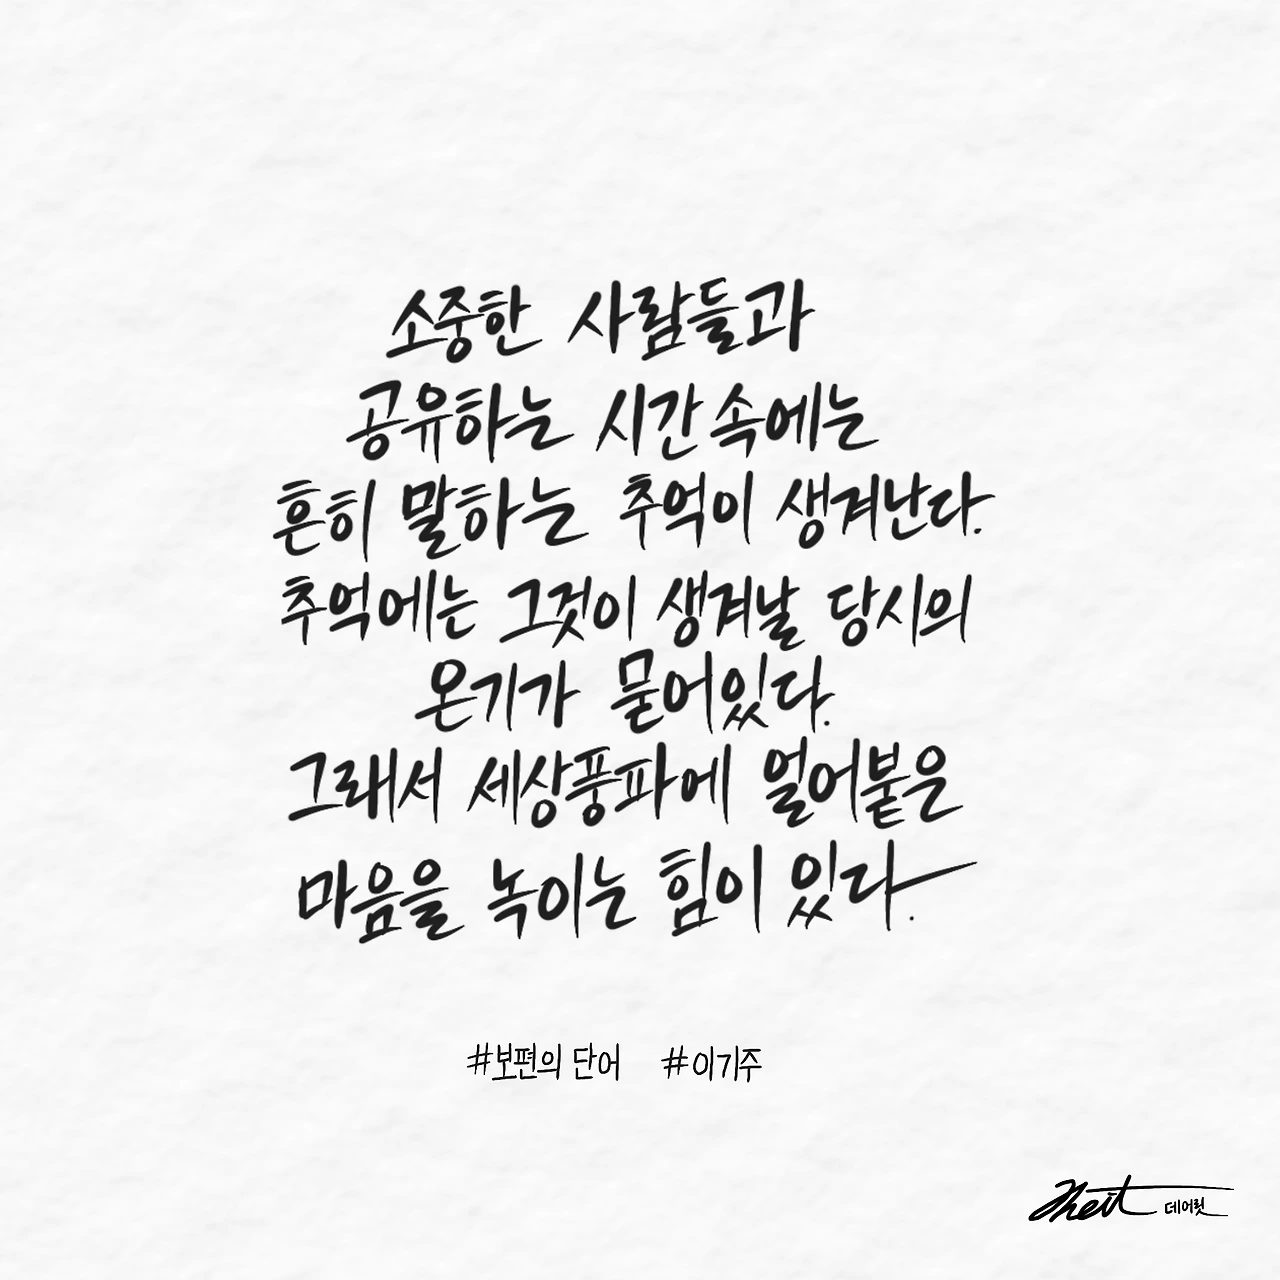 소중한 사람들과
공유하는 시간속에는
흔히 말하는 추억이 생겨난다.
추억에는 그것이 생겨날 당시의
온기가 묻어있다.
그래서 세상풍파에 얼어붙은
마음을 녹이는 힘이 있다.
#보편의 단어 #이기주
데어릿